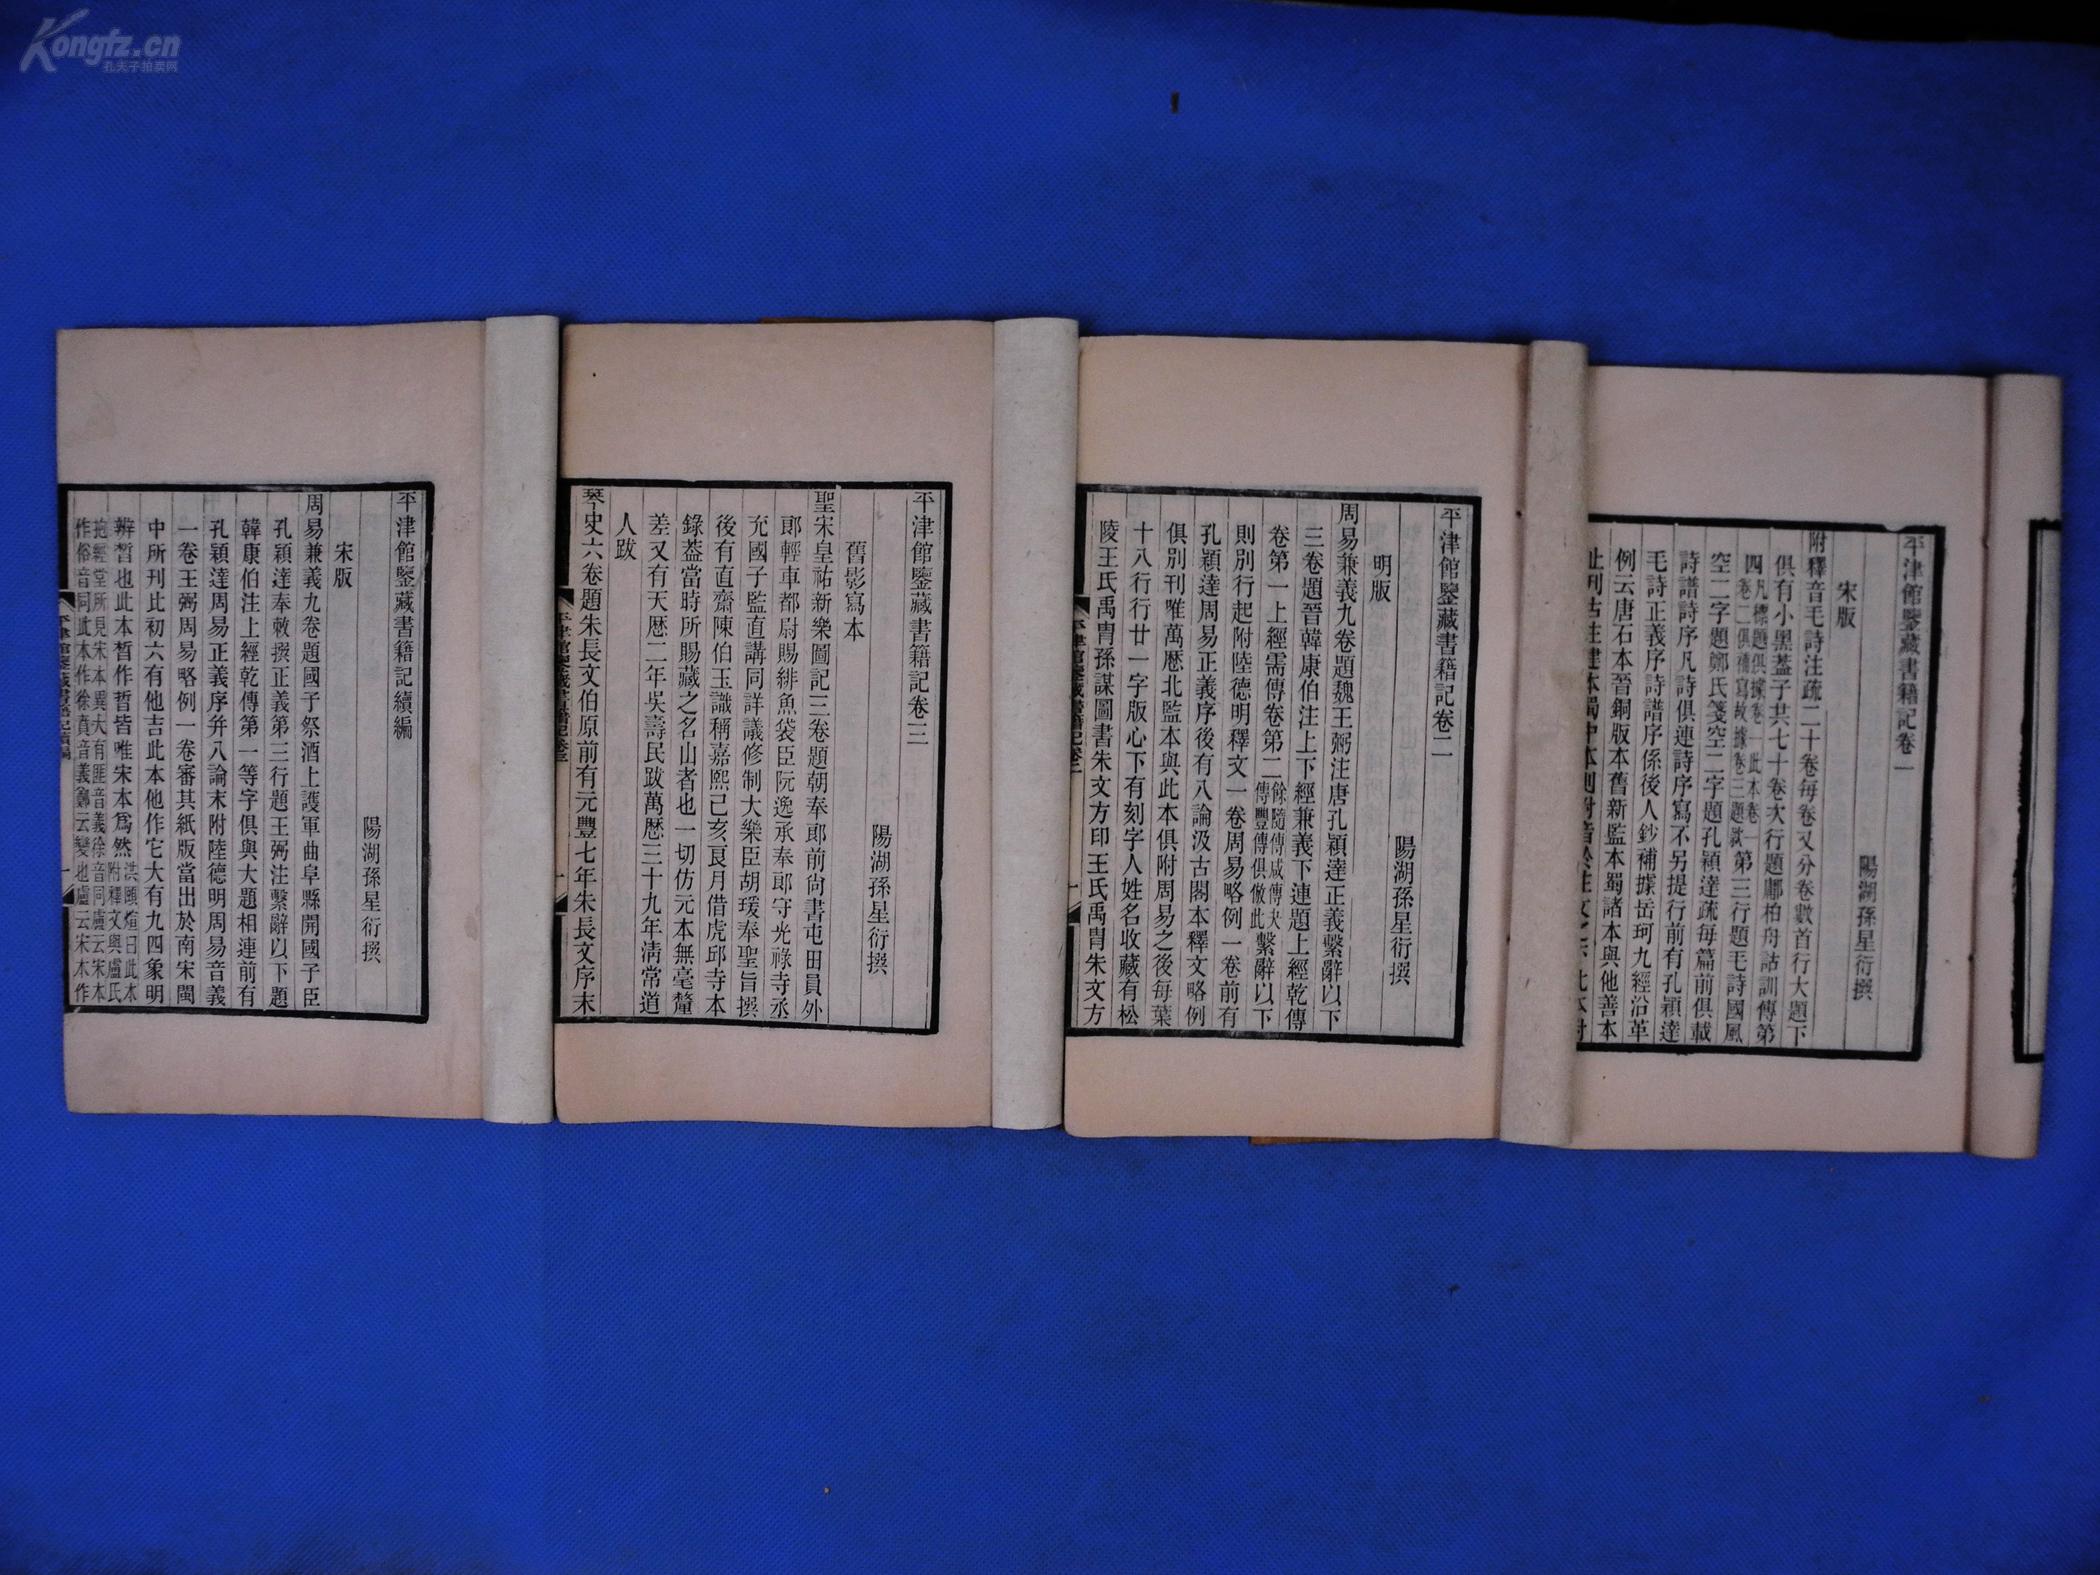 Kongfz.cn
孔夫子拍卖网
平津館鑒藏書籍記卷一
陽湖孫星衍撰
宋版
附釋音毛詩注疏二十卷每卷又分卷數首行大題下
俱有小黑蓋子共七十卷次行題鄘柏舟詁訓傳第
四
空二字題鄭氏箋空二字題孔穎達疏每篇前俱載
詩譜詩序凡詩俱連詩序寫不另提行前有孔穎達
毛詩正義序詩譜序係後人鈔補據岳珂九經沿革
例云唐石本晉銅版本舊新監本蜀諸本與他善本
平津館鑒藏書籍記卷二
陽湖孫星衍撰
明版
周易兼義九卷題魏王弼注唐孔穎達正義繫辭以下
三卷題晉韓康伯注上下經兼義下連題上經乾傳
卷第一上經需傳卷第二餘隨傳咸傳夬傳豐傳俱倣此繫辭以下
則別行起附陸德明釋文一卷周易略例一卷前有
孔穎達周易正義序後有八論汲古閣本釋文略例
俱別刊唯萬歷北監本與此本俱附周易之後每葉
十八行行廿一字版心下有刻字人姓名收藏有松
陵王氏禹胄孫謀圖書朱文方印王氏禹胄朱文方
平津館鑒藏書籍記卷三
陽湖孫星衍撰
舊影寫本
聖宋皇祐新樂圖記三卷題朝奉郎前尚書屯田員外
郎輕車都尉賜緋魚袋臣阮逸承奉郎守光祿寺丞
充國子監直講同詳議修制大樂臣胡瑗奉聖旨撰
後有直齋陳伯玉識稱嘉熙己亥良月借虎邱寺本
錄蓋當時所賜藏之名山者也一切仿元本無毫釐
差又有天歷二年吳壽民跋萬歷三十九年清常道
人跋
琴史六卷題朱長文伯原前有元豐七年朱長文序末
平津館鑒藏書籍記卷三
平津館鑒藏書籍記續編
陽湖孫星衍撰
宋版
周易兼義九卷題國子祭酒上護軍曲阜縣開國子臣
孔穎達奉敕撰正義第三行題王弼注繫辭以下題
韓康伯注上經乾傳第一等字俱與大題相連前有
孔穎達周易正義序并八論末附陸德明周易音義
一卷王弼周易略例一卷審其紙版當出於南宋閩
中所刊比初六有他吉此本他作它大有九四象明
辨晳也此本晳作晢皆唯宋本為然洪頤煊曰此本附釋文與盧氏
抱經堂所見宋本異大有匪音義徐音同盧云宋本
作俗音同此本作徐賁音義鄭云變也盧云宋本作
平津館鑒藏書籍記續編